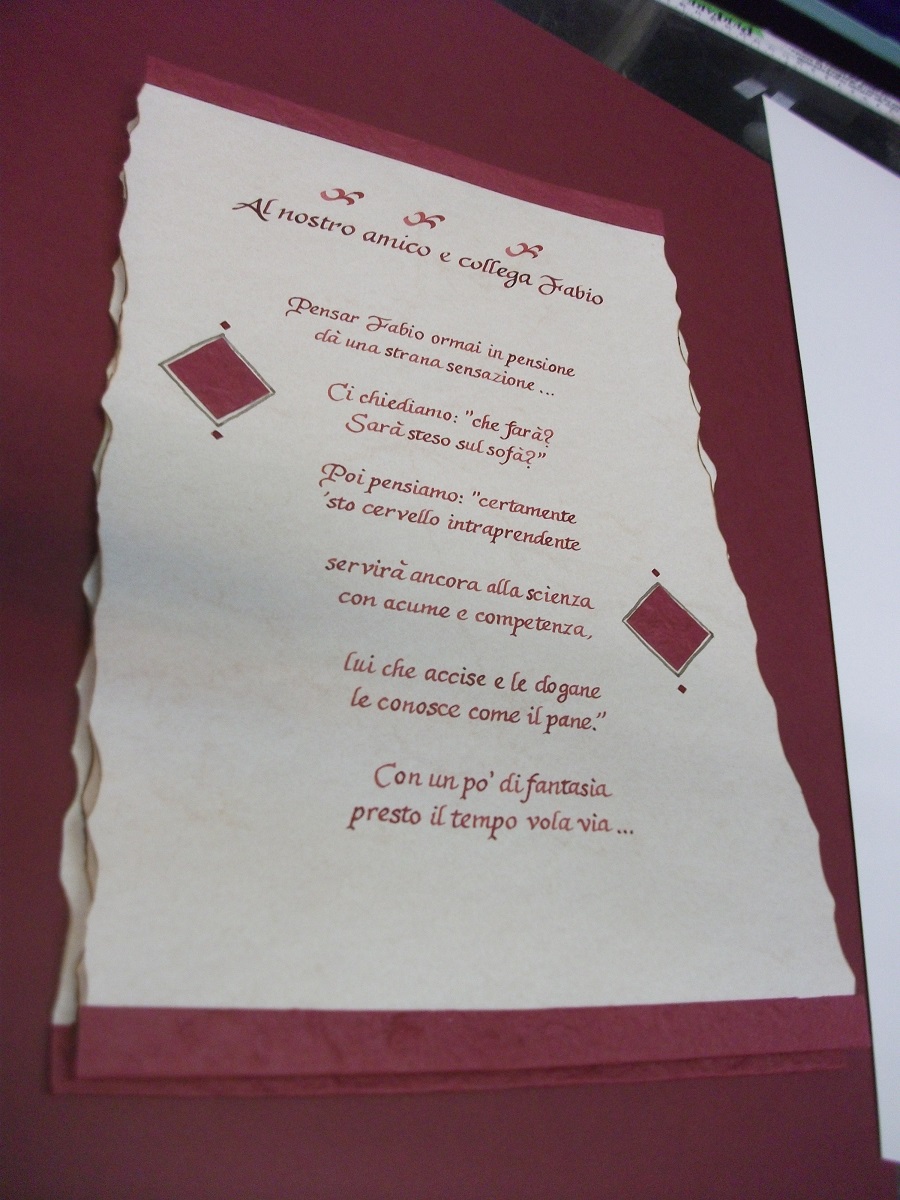 Al nostro amico e collega Fabio
Pensar Fabio ormai in pensione
dà una strana sensazione ...
Ci chiediamo: "che farà?
Sarà steso sul sofà?"
Poi pensiamo: "certamente
'sto cervello intraprendente
servirà ancora alla scienza
con acume e competenza,
lui che accise e le dogane
le conosce come il pane."
Con un po' di fantasia
presto il tempo vola via ...